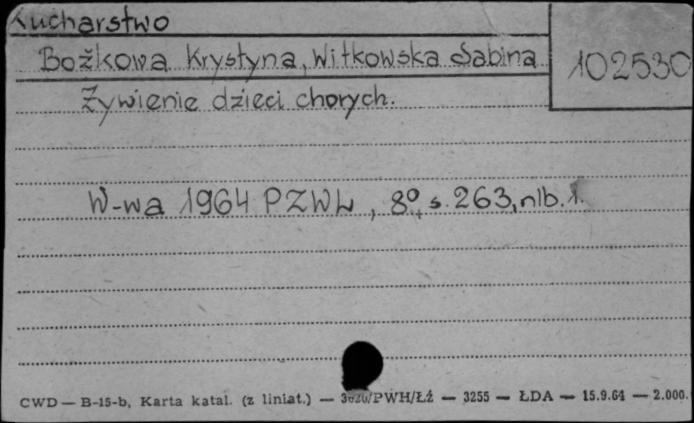 Kucharstwo
Bożkowa Krystyna, Witkowska Sabina
102530
Żywienie dzieci chorych.
W-wa 1964 PZWL, 8°, s. 263, nlb. 1.
CWD — B-15-b, Karta katal. (z liniat.) — /PWH/Łź — 3255 — ŁDA — 15.9.64 — 2.000.